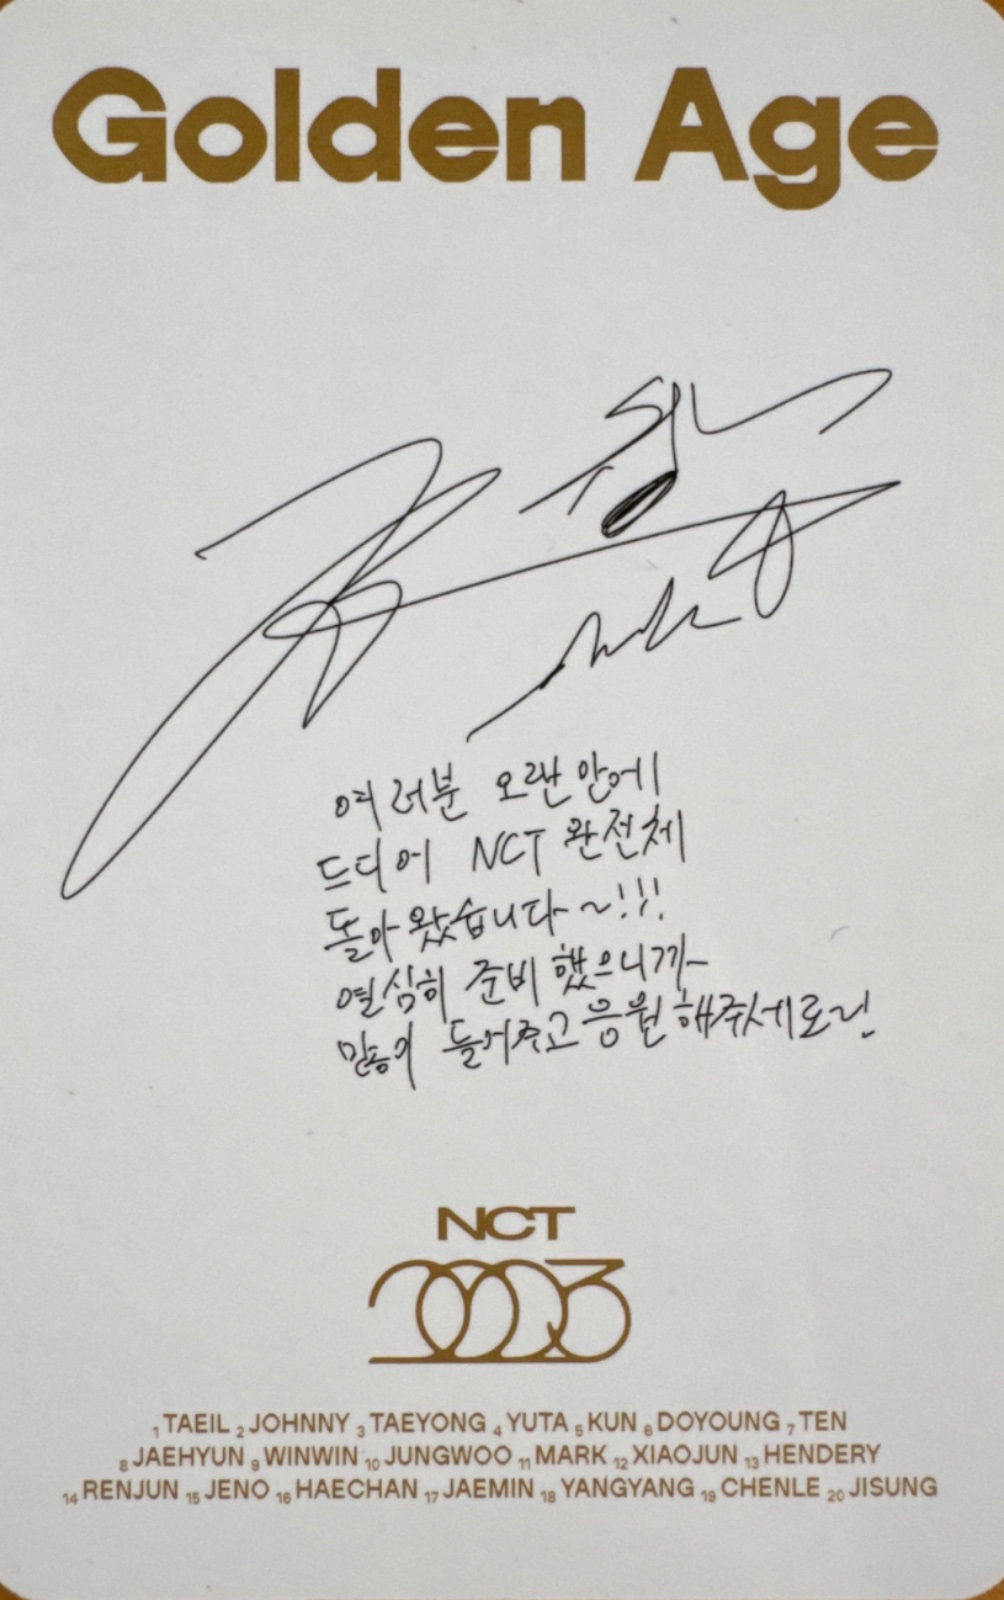 Golden Age
여러분 오랜만에
드디어 NCT 완전체
돌아왔습니다~!!!
열심히 준비했으니까~
많이 들어주고 응원해주세요
NCT
2023
1 TAEIL 2 JOHNNY 3 TAEYONG 4 YUTA 5 KUN 6 DOYOUNG 7 TEN
8 JAEHYUN 9 WINWIN 10 JUNGWOO 11 MARK 12 XIAOJUN 13 HENDERY
14 RENJUN 15 JENO 16 HAECHAN 17 JAEMIN 18 YANGYANG 19 CHENLE 20 JISUNG